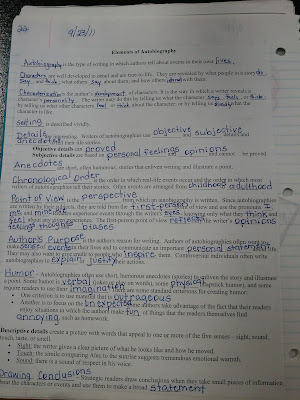 22
9/23/11
Elements of Autobiography
Autobiography is the type of writing in which authors tell about events in their own lives.
Characters are well developed in detail and are true-to-life. They are revealed by what people in a story do
say, and think; what others say about them; and how others
Characterization is the author's development of characters. It is the way in which a writer reveals a
character's personality. The writer may do this by telling us what the character says, feels, or thinks
by telling us what other characters feel or think about the character; or by telling us directly what
the character is like.
setting is described vividly.
Details are interesting. Writers of autobiographies use objective and subjective
anecdotes in their life stories.
Objective details can be proved
Subjective details are based on personal feelings and opinions and cannot be proved
Anecdotes are short, often humorous, stories that enliven writing and illustrate a point.
Chronological order is the order in which real-life events occur and the order in which most
writers of autobiographies tell their stories. Often events are arranged from childhood adulthood
Point of view is the perspective from which an autobiography is written. Since autobiographies
are written by their subject, they are told from the first-person
and the experience events through the writer's eyes, knowing only what they think and
The first-person point of view reflects the writer's opinions
feelings thoughts biases
Author's Purpose is the author's reason for writing. Authors of autobiographies often want to
make sense of events in their lives and to communicate an important personal statement
They may also want to pay tribute to people who inspire them. Controversial individuals often write
autobiographies to explain, justify actions
Humor - Autobiographers often use short, humorous anecdotes (stories) to enliven the story and illustrate
a point. Some humor is verbal (jokes or a play on words), some physical (slapstick humor), and some
require readers to use their imagination
One criterion is to use material that is outrageous
Another is to focus on the unexpected
enjoy situations in which the authors make fun of things that the readers themselves find
annoying, such as homework.
Descriptive details create a picture with words that appeal to one or more of the five senses - sight, sound,
touch, taste, or smell.
Sight: the writer gives a clear picture of what he looks like and how he moved.
Touch: the simile comparing Alec to the sunrise suggests tremendous emotional warmth.
Sound: there is a sound of respect in his voice.
Drawing Conclusions - Strategic readers draw conclusions when they take small pieces of information
about the characters or events and use them to make a broad statement